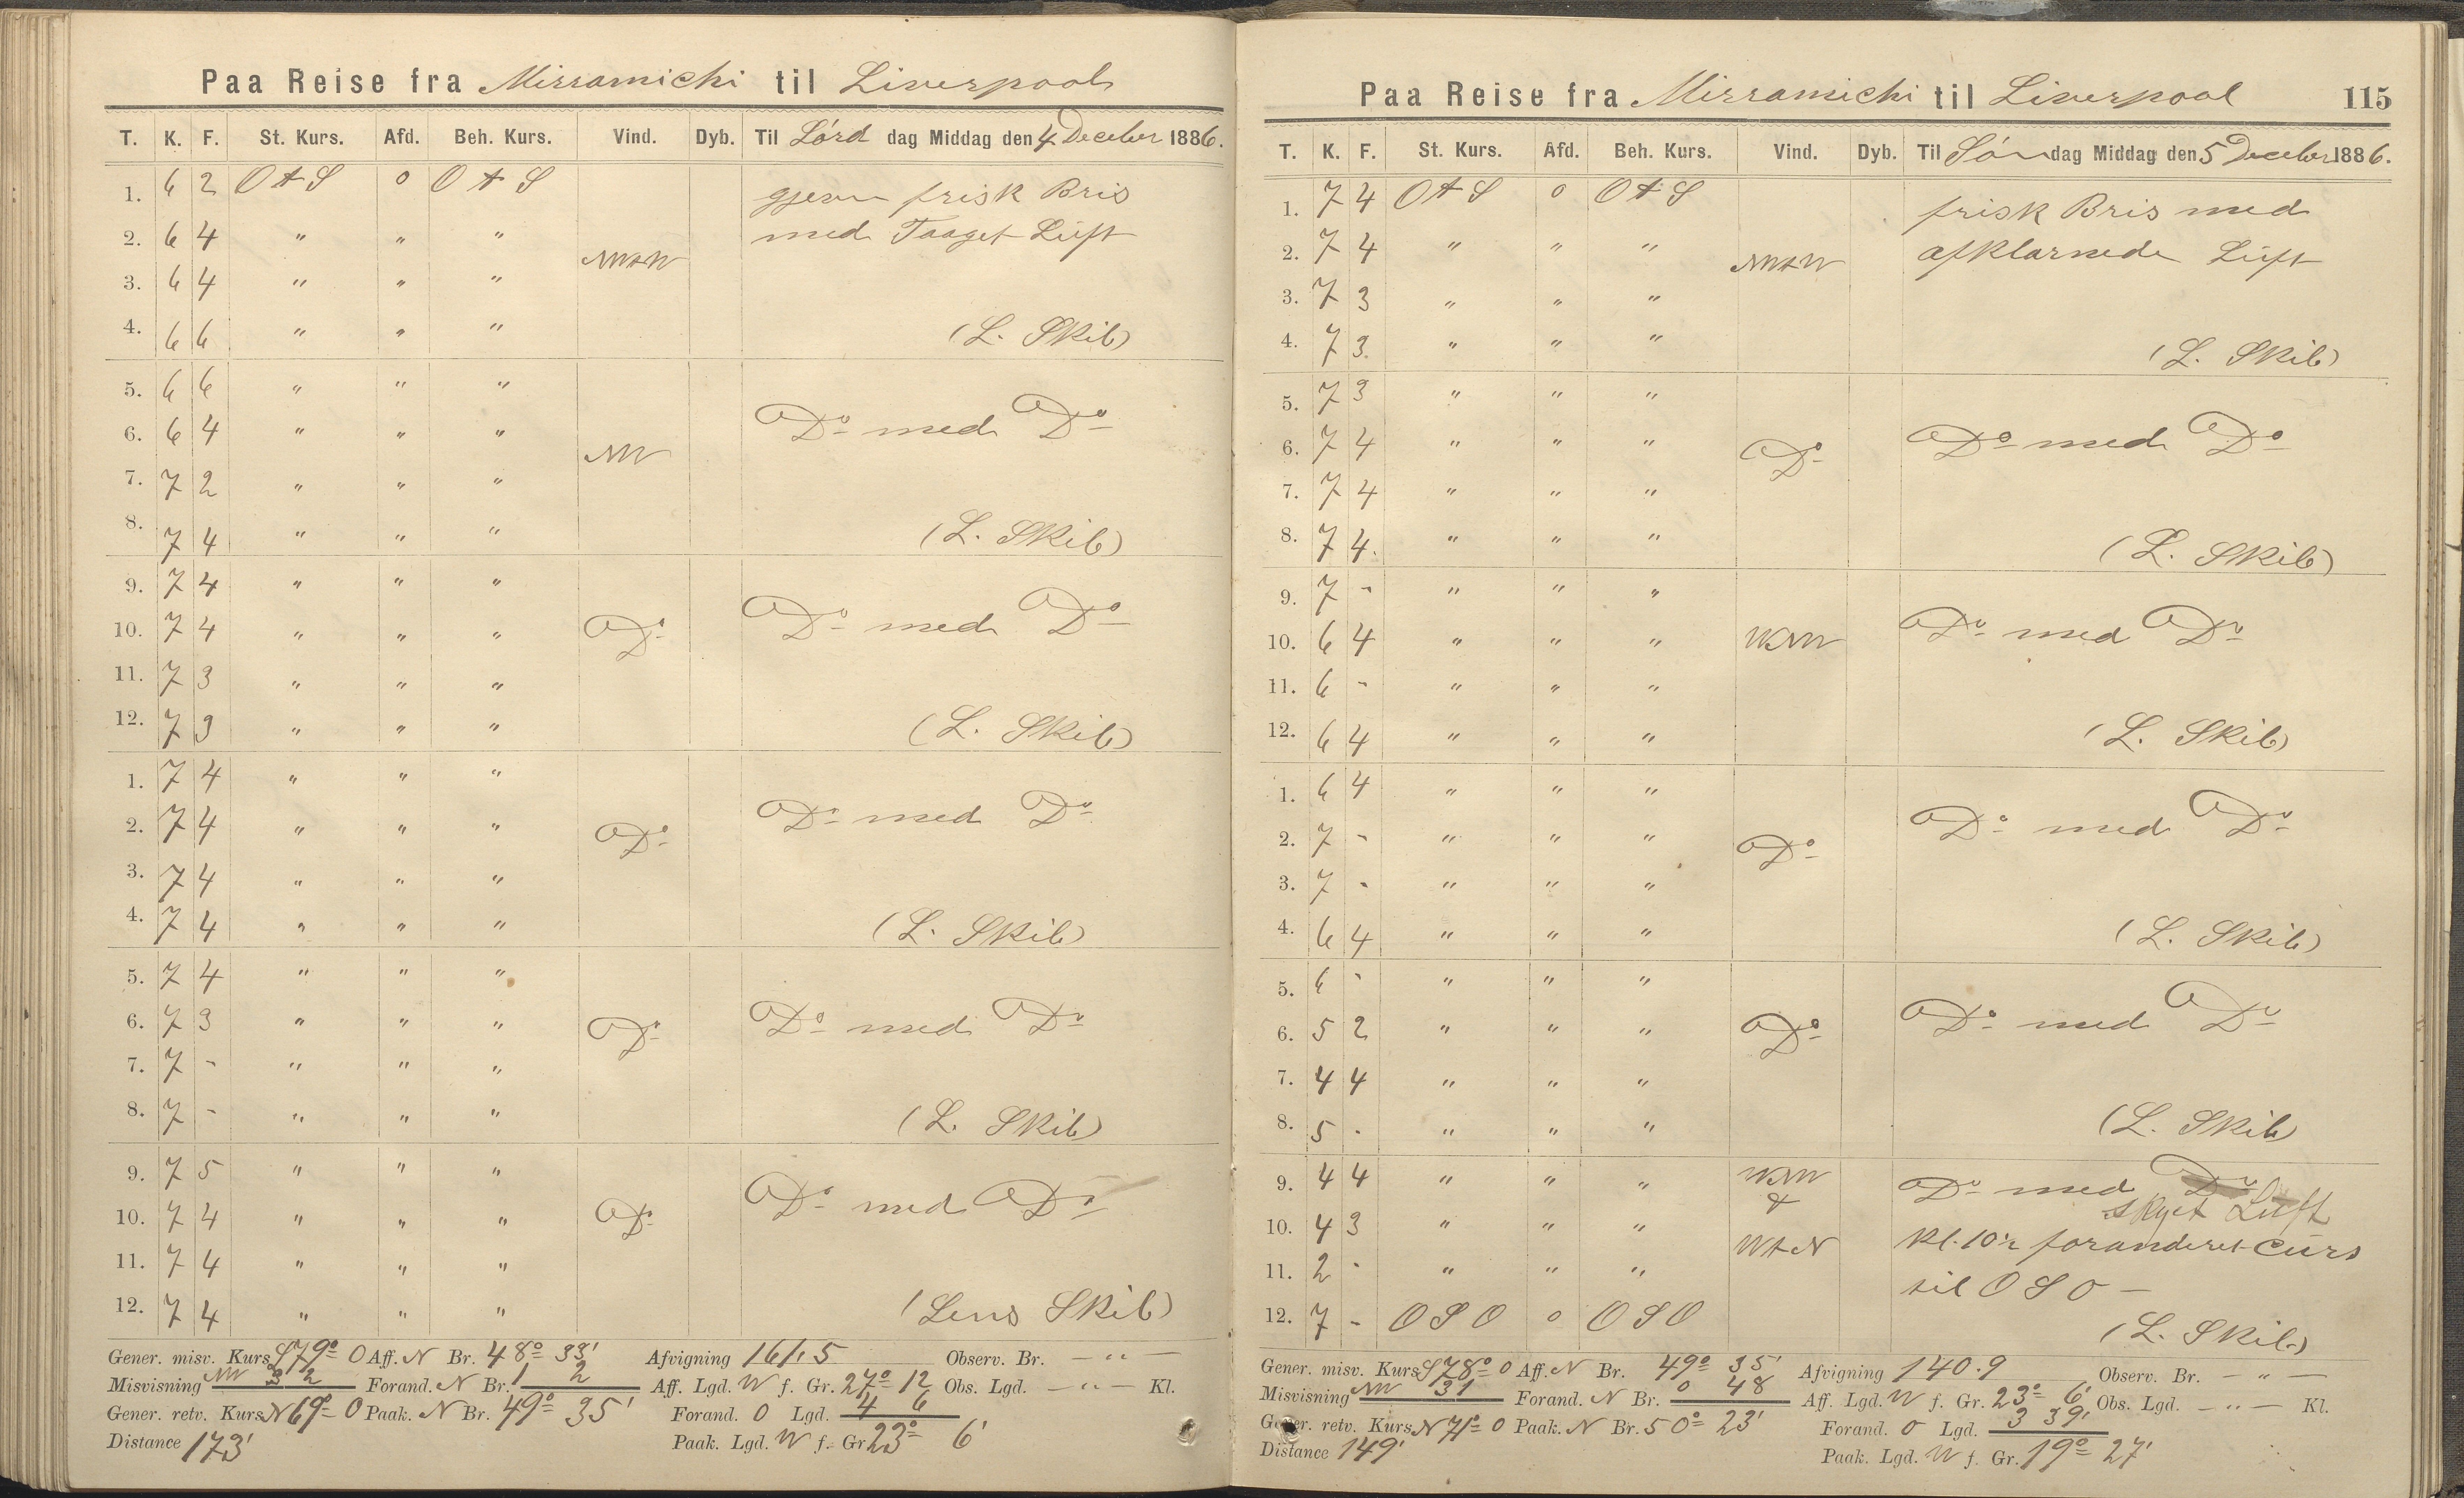 Paa Reise fra Mirramichi til Liverpool
T. K. F. St. Kurs. Afd. Beh. Kurs. Vind. Dyb. Til Lörd dag Middag den 4 December 1886.
1. 6 2 O t S o O t S gjevn frisk Bris
2. 6 4 " " " NWtW med Taaget Luft
3. 6 4 " " "
4. 6 6 " " " (L. Skib)
5. 6 6 " " "
6. 6 4 " " " NW Do med Do
7. 7 2 " " "
8. 7 4 " " " (L. Skib)
9. 7 4 " " "
10. 7 4 " " " Do Do med Do
11. 7 3 " " "
12. 7 3 " " " (L. Skib)
1. 7 4 " " "
2. 7 4 " " " Do Do med Do
3. 7 4 " " "
4. 7 4 " " " (L. Skib)
5. 7 4 " " "
6. 7 3 " " " Do Do med Do
7. 7 - " " "
8. 7 - " " " (L. Skib)
9. 7 5 " " "
10. 7 4 " " " Do Do med Do
11. 7 4 " " "
12. 7 4 " " " (Lens Skib)
Gener. misv. Kurs S 79° O Aff. N Br. 48° 33' Afvigning 161.5 Observ. Br. — " —
Misvisning NW 32 Forand. N Br. 1 2 Aff. Lgd. W f. Gr. 27° 12 Obs. Lgd. — " — Kl.
Gener. retv. Kurs N 69° O Paak. N Br. 49° 35' Forand. O Lgd. 4 6
Distance 173' Paak. Lgd. W f. Gr. 23° 6'
Paa Reise fra Mirramichi til Liverpool 115
T. K. F. St. Kurs. Afd. Beh. Kurs. Vind. Dyb. Til Sön dag Middag den 5 December 1886.
1. 7 4 O t S o O t S frisk Bris med
2. 7 4 " " " NWtW afklarnede Luft
3. 7 3 " " "
4. 7 3 " " " (L. Skib)
5. 7 3 " " "
6. 7 4 " " " Do Do med Do
7. 7 4 " " "
8. 7 4 " " " (L. Skib)
9. 7 - " " "
10. 6 4 " " " WNW Do med Do
11. 6 - " " "
12. 6 4 " " " (L. Skib)
1. 6 4 " " "
2. 7 - " " " Do Do med Do
3. 7 - " " "
4. 6 4 " " " (L. Skib)
5. 6 - " " "
6. 5 2 " " " Do Do med Do
7. 4 4 " " "
8. 5 - " " " (L. Skib)
9. 4 4 " " " WNW & Do med Do skyet Luft
10. 4 3 " " " WtN Kl. 10½ foranderet Curs
11. 2 - " " " til O S O —
12. 7 - O S O o O S O (L. Skib)
Gener. misv. Kurs S 78° O Aff. N Br. 49° 35' Afvigning 140.9 Observ. Br. — " —
Misvisning NW 31 Forand. N Br. 0 48 Aff. Lgd. W f. Gr. 23° 6' Obs. Lgd. — " — Kl.
Gener. retv. Kurs N 71° O Paak. N Br. 50° 23' Forand. O Lgd. 3 39'
Distance 149' Paak. Lgd. W f. Gr. 19° 27'